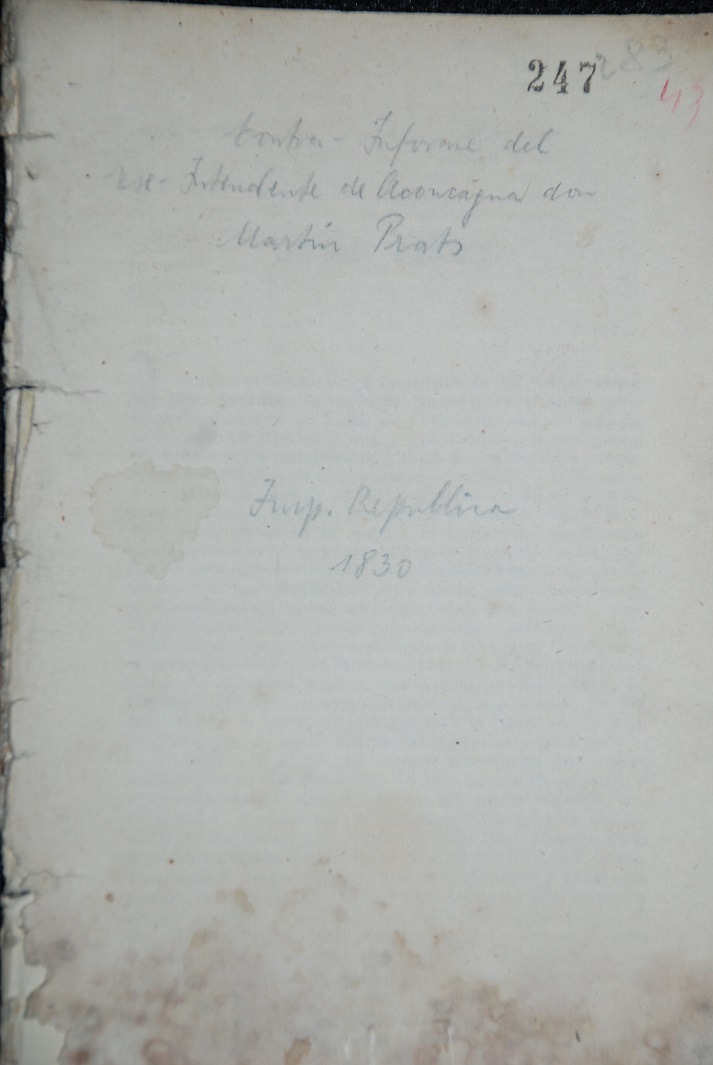 247 283
43
Contra-Informe del
Ex-Intendente de Aconcagua don
Martín Prats
Imp. Republica
1830